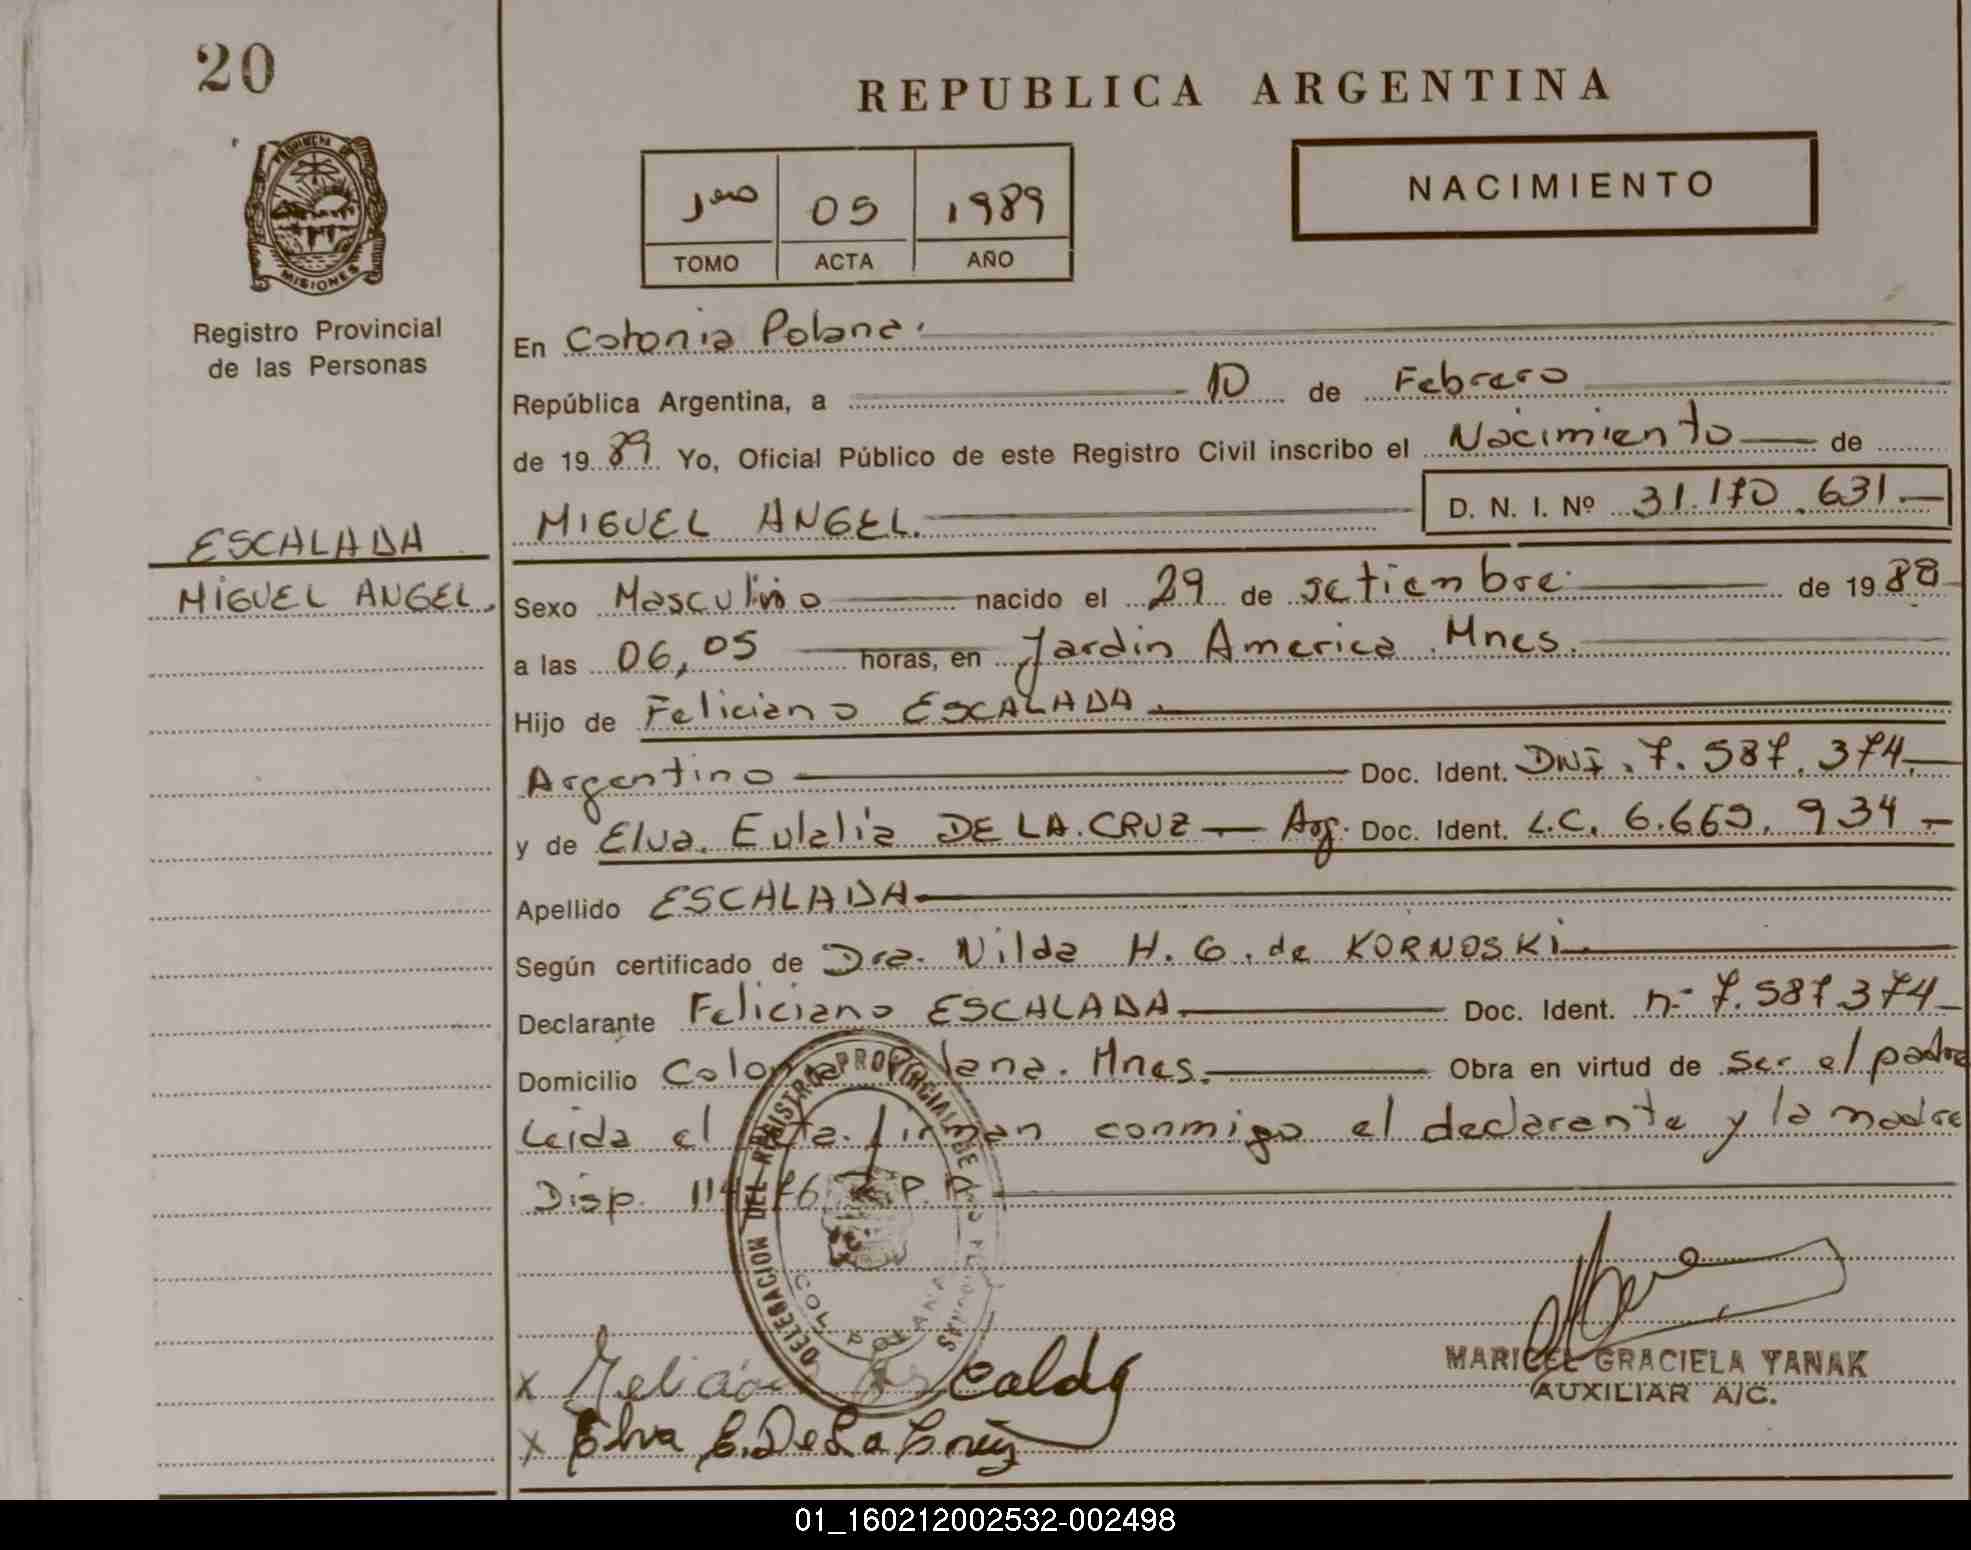 20
REPUBLICA ARGENTINA
PROVINCIA DE MISIONES
Registro Provincial
de las Personas
05 1989
TOMO ACTA AÑO
NACIMIENTO
En Colonia Polana.
República Argentina, a 10 de Febrero
de 1989 Yo, Oficial Público de este Registro Civil inscribo el Nacimiento de
MIGUEL ANGEL. D. N. I. Nº 31.170.631.
ESCALADA
MIGUEL ANGEL.
Sexo Masculino nacido el 29 de setiembre de 1988
a las 06,05 horas, en Jardin America. Mnes.
Hijo de Feliciano ESCALADA.
Argentino Doc. Ident. DNI. 7.587.374.
y de Elva. Eulalia DE LA.CRUZ Arg. Doc. Ident. L.C. 6.669.934
Apellido ESCALADA
Según certificado de Dra. Nilda H. G. de KORNOSKI
Declarante Feliciano ESCALADA Doc. Ident. n- 7.587.374
Domicilio Colonia Polana. Mnes. Obra en virtud de ser el padre
Leida el Acta. firman conmigo el declarante y la madre
Disp. 114/76 R.P.P.
DELEGACION DEL REGISTRO PROVINCIAL DE LAS PERSONAS
COL. POLANA
MARICEL GRACIELA YANAK
AUXILIAR A/C.
x Feliciano Escalda
x Elva E. De La Cruz
01_160212002532-002498